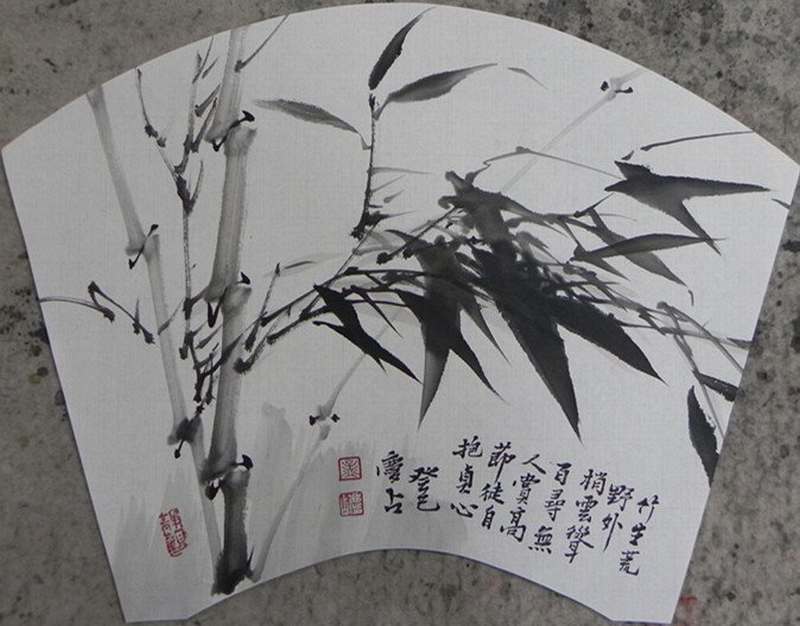 竹生荒
野外
梢雲聳
百尋無
人賞高
節徒自
抱貞心
癸巳
慶占